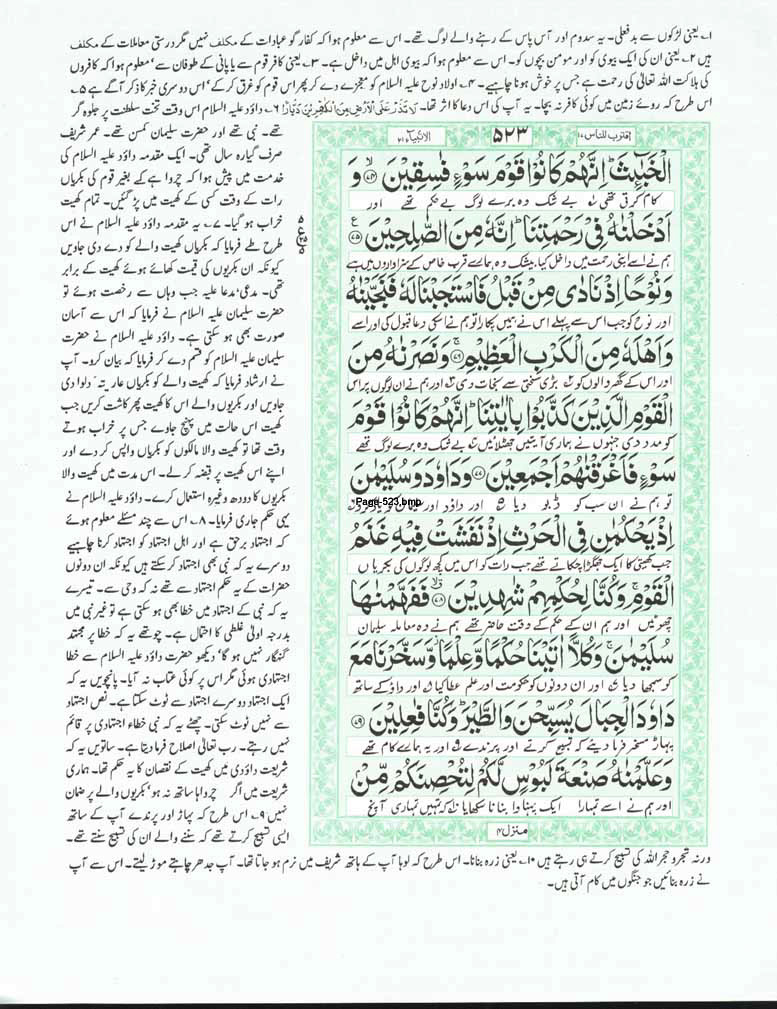 ۱؎ یعنی لڑکوں سے بدفعلی۔ یہ سدوم اور آس پاس کے رہنے والے لوگ تھے۔ اس سے معلوم ہوا کہ کفار گو عبادات کے مکلف نہیں مگر درستی معاملات کے مکلف
ہیں ۲؎ یعنی ان کی ایک بیوی کو اور مومن بچوں کو۔ اس سے معلوم ہوا کہ بیوی اہل میں داخل ہے۔ ۳؎ یعنی کافر قوم سے یا پانی کے طوفان سے' معلوم ہوا کہ کافروں
کی ہلاکت اللہ تعالیٰ کی رحمت ہے جس پر خوش ہونا چاہیے۔ ۴؎ اولاد نوح علیہ السلام کو معجزے دے کر پھر اس قوم کو غرق کر کے' اس دوسری خبر کا ذکر آگے ہے ۵؎
اس طرح کہ روئے زمین میں کوئی کافر نہ بچا۔ یہ آپ کی اس دعا کا اثر تھا۔ لَا تَذَرْ عَلَی الْاَرْضِ مِنَ الْکٰفِرِیْنَ دَیَّارًا ۶؎ داؤد علیہ السلام اس وقت تخت سلطنت پر جلوہ گر
تھے۔ نبی تھے اور حضرت سلیمان کمسن تھے۔ عمر شریف
صرف گیارہ سال تھی۔ ایک مقدمہ داؤد علیہ السلام کی
خدمت میں پیش ہوا کہ چرواہے کے بغیر قوم کی بکریاں
رات کے وقت کسی کے کھیت میں پڑ گئیں۔ تمام کھیت
خراب ہو گیا۔ ۷؎ یہ مقدمہ داؤد علیہ السلام نے اس
طرح طے فرمایا کہ بکریاں کھیت والے کو دے دی جاویں
کیونکہ ان بکریوں کی قیمت کھائے ہوئے کھیت کے برابر
تھی۔ مدعی' مدعا علیہ جب وہاں سے رخصت ہوئے تو
حضرت سلیمان علیہ السلام نے فرمایا کہ اس سے آسان
صورت بھی ہو سکتی ہے۔ داؤد علیہ السلام نے حضرت
سلیمان علیہ السلام کو قسم دے کر فرمایا کہ بیان کرو۔ آپ
نے ارشاد فرمایا کہ کھیت والے کو بکریاں عاریتہً دلوا دی
جاویں اور بکریوں والے اس کا کھیت پھر کاشت کریں جب
کھیت اس حالت میں پہنچ جاوے جس پر خراب ہوتے
وقت تھا تو کھیت والا مالکوں کو بکریاں واپس کر دے اور
اپنے اس کھیت پر قبضہ کر لے۔ اس مدت میں کھیت والا
بکریوں کا دودھ وغیرہ استعمال کرے۔ داؤد علیہ السلام نے
یہی حکم جاری فرمایا۔ ۸؎ اس سے چند مسئلے معلوم ہوئے
کہ اجتہاد برحق ہے اور اہل اجتہاد کو اجتہاد کرنا چاہیے
دوسرے یہ کہ نبی بھی اجتہاد کر سکتے ہیں کیونکہ ان دونوں
حضرات کے یہ حکم اجتہاد سے تھے نہ کہ وحی سے۔ تیسرے
یہ کہ نبی کے اجتہاد میں خطا بھی ہو سکتی ہے تو غیر نبی میں
بدرجہ اولیٰ غلطی کا احتمال ہے۔ چوتھے یہ کہ خطا پر مجتہد
گنہگار نہیں ہو گا' دیکھو حضرت داؤد علیہ السلام سے خطا
اجتہادی ہوئی مگر اس پر کوئی عتاب نہ آیا۔ پانچویں یہ کہ
ایک اجتہاد دوسرے اجتہاد سے ٹوٹ سکتا ہے۔ نص اجتہاد
سے نہیں ٹوٹ سکتی۔ چھٹے یہ کہ نبی خطاء اجتہادی پر قائم
نہیں رہتے۔ رب تعالیٰ اصلاح فرما دیتا ہے۔ ساتویں یہ کہ
شریعت داؤدی میں کھیت کے نقصان کا یہ حکم تھا۔ ہماری
شریعت میں اگر چرواہا ساتھ نہ ہو' بکریوں والے پر ضمان
نہیں ۹؎ اس طرح کہ پہاڑ اور پرندے آپ کے ساتھ
ایسی تسبیح کرتے تھے کہ سننے والے ان کی تسبیح سنتے تھے۔
اقترب للناس ۱۷
۵۲۳
الانبیآء ۲۱
الْخَبٰٓئِثَ ؕ اِنَّهُمْ كَانُوْا قَوْمَ سَوْءٍ فٰسِقِیْنَ ۙ۝۷۴ وَ
کام کرتی تھی لہ بے شک وہ برے لوگ بے حکم تھے اور
اَدْخَلْنٰهُ فِیْ رَحْمَتِنَا ؕ اِنَّهٗ مِنَ الصّٰلِحِیْنَ ۝۷۵
ہم نے اسے اپنی رحمت میں داخل کیا بیشک وہ ہمارے قرب خاص کے سزاواروں میں ہے
وَ نُوْحًا اِذْ نَادٰی مِنْ قَبْلُ فَاسْتَجَبْنَا لَهٗ فَنَجَّیْنٰهُ
اور نوح کو جب اس سے پہلے اس نے ہمیں پکارا تو ہم نے اسکی دعا قبول کی اور اسے
وَ اَهْلَهٗ مِنَ الْكَرْبِ الْعَظِیْمِ ۚ۝۷۶ وَ نَصَرْنٰهُ مِنَ
اور اس کے گھر والوں کو بڑی سختی سے نجات دی اور ہم نے ان لوگوں پر اس
الْقَوْمِ الَّذِیْنَ كَذَّبُوْا بِاٰیٰتِنَا ؕ اِنَّهُمْ كَانُوْا قَوْمَ
کو مدد دی جنہوں نے ہماری آیتیں جھٹلائیں بے شک وہ برے لوگ تھے
سَوْءٍ فَاَغْرَقْنٰهُمْ اَجْمَعِیْنَ ۝۷۷ وَ دَاوٗدَ وَ سُلَیْمٰنَ
تو ہم نے ان سب کو ڈبو دیا اور داؤد اور
Page-523.bmp
اِذْ یَحْكُمٰنِ فِی الْحَرْثِ اِذْ نَفَشَتْ فِیْهِ غَنَمُ
جب کھیتی کا ایک جھگڑا چکاتے تھے جب رات کو اس میں کچھ لوگوں کی بکریاں
الْقَوْمِ ۚ وَ كُنَّا لِحُكْمِهِمْ شٰهِدِیْنَ ۝۷۸ فَفَهَّمْنٰهَا
چھوٹیں اور ہم ان کے حکم کے وقت حاضر تھے ہم نے وہ معاملہ سلیمان
سُلَیْمٰنَ ۚ وَ كُلًّا اٰتَیْنَا حُكْمًا وَّ عِلْمًا ؗ وَّ سَخَّرْنَا مَعَ
کو سمجھا دیا اور ان دونوں کو حکومت اور علم عطا کیا اور داؤد کے ساتھ
دَاوٗدَ الْجِبَالَ یُسَبِّحْنَ وَ الطَّیْرَ ؕ وَ كُنَّا فٰعِلِیْنَ ۝۷۹
پہاڑ مسخر فرما دیئے کہ تسبیح کرتے اور پرندے اور یہ ہمارے کام تھے
وَ عَلَّمْنٰهُ صَنْعَةَ لَبُوْسٍ لَّكُمْ لِتُحْصِنَكُمْ مِّنْۢ
اور ہم نے اسے تمہارا ایک پہناوا بنانا سکھایا کہ تمہیں تمہاری آنچ
منزل ۴
ورنہ شجر و حجر اللہ کی تسبیح کرتے ہی رہتے ہیں ۱۰؎ یعنی زرہ بنانا۔ اس طرح کہ لوہا آپ کے ہاتھ شریف میں نرم ہو جاتا تھا۔ آپ جدھر چاہتے موڑ لیتے۔ اس سے آپ
نے زرہ بنائیں جو جنگوں میں کام آتی ہیں۔